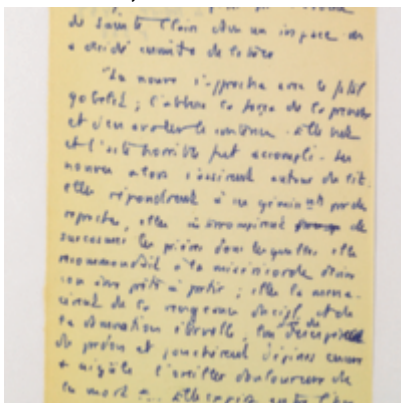 de Sainte Claire dans un in pace on
a décidé ensuite de
"La nonne s'approcha avec le petit
gobelet ; l'abbesse la força de le prendre
et d'en avaler le contenu. Elle but
et l'acte horrible fut accompli. Les
nonnes alors s'assirent autour du lit.
elles répondirent à ses gémissements par des
reproches, elles interrompirent de
sarcasmes les prières dans lesquelles elle
recommandait à la miséricorde divine
son âme prête à partir ; elles la mena-
cèrent de la vengeance du ciel et de
la damnation éternelle, lui
de pardon et jonchèrent d'épines encore
+ aiguës l'oreiller douloureux de
la mort Elle expira entre